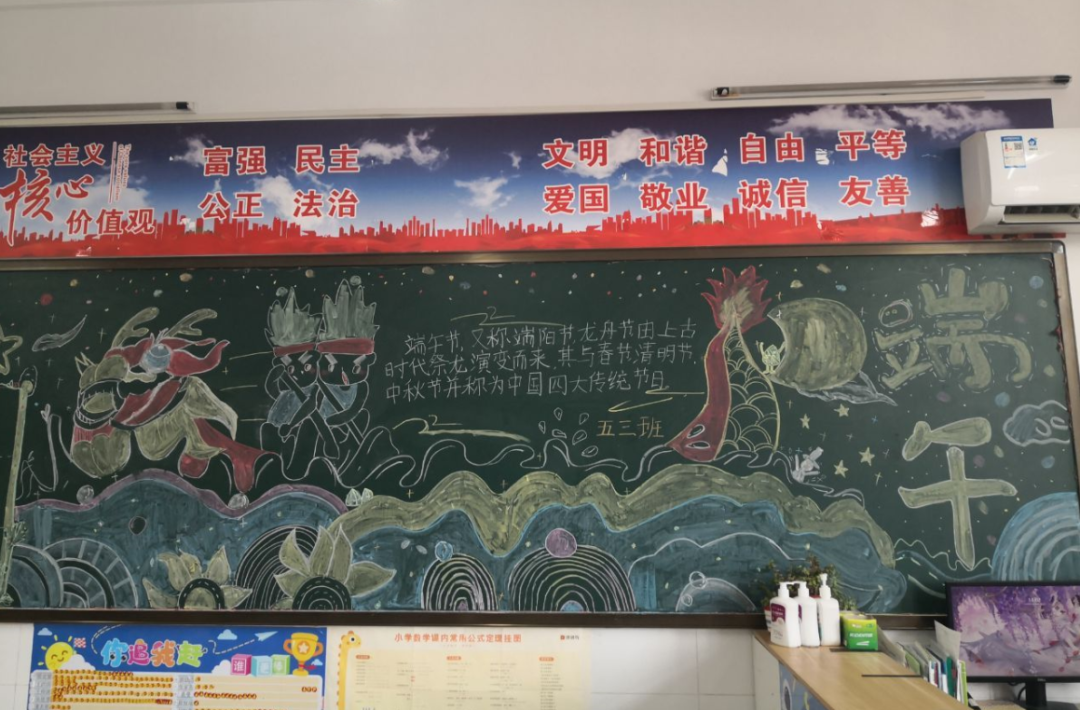 社会主义
核心
价值观
富强 民主
公正 法治
文明 和谐 自由 平等
爱国 敬业 诚信 友善
端午节,又称端阳节,龙舟节由上古
时代祭龙演变而来,其与春节,清明节,
中秋节并称为中国四大传统节日
五三班
端
午
你追我赶
小学数学课内常用公式定理挂图